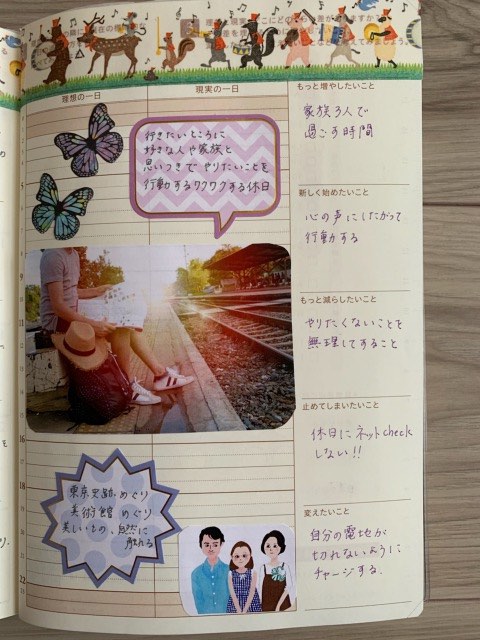 理想の一日
現実の一日
行きたいところに
好きな人や家族と
思いつきで やりたいことを
行動するワクワクする休日
11
16
18
22
めぐり
美術館 めぐり
美しいもの、自然に
触れる
もっと増やしたいこと
家族3人で
過ごす時間
新しく始めたいこと
心の声にしたがって
行動する
もっと減らしたいこと
やりたくないことを
無理してすること
止めてしまいたいこと
休日にネットcheck
しない!!
変えたいこと
自分の電池が
切れないように
チャージする.